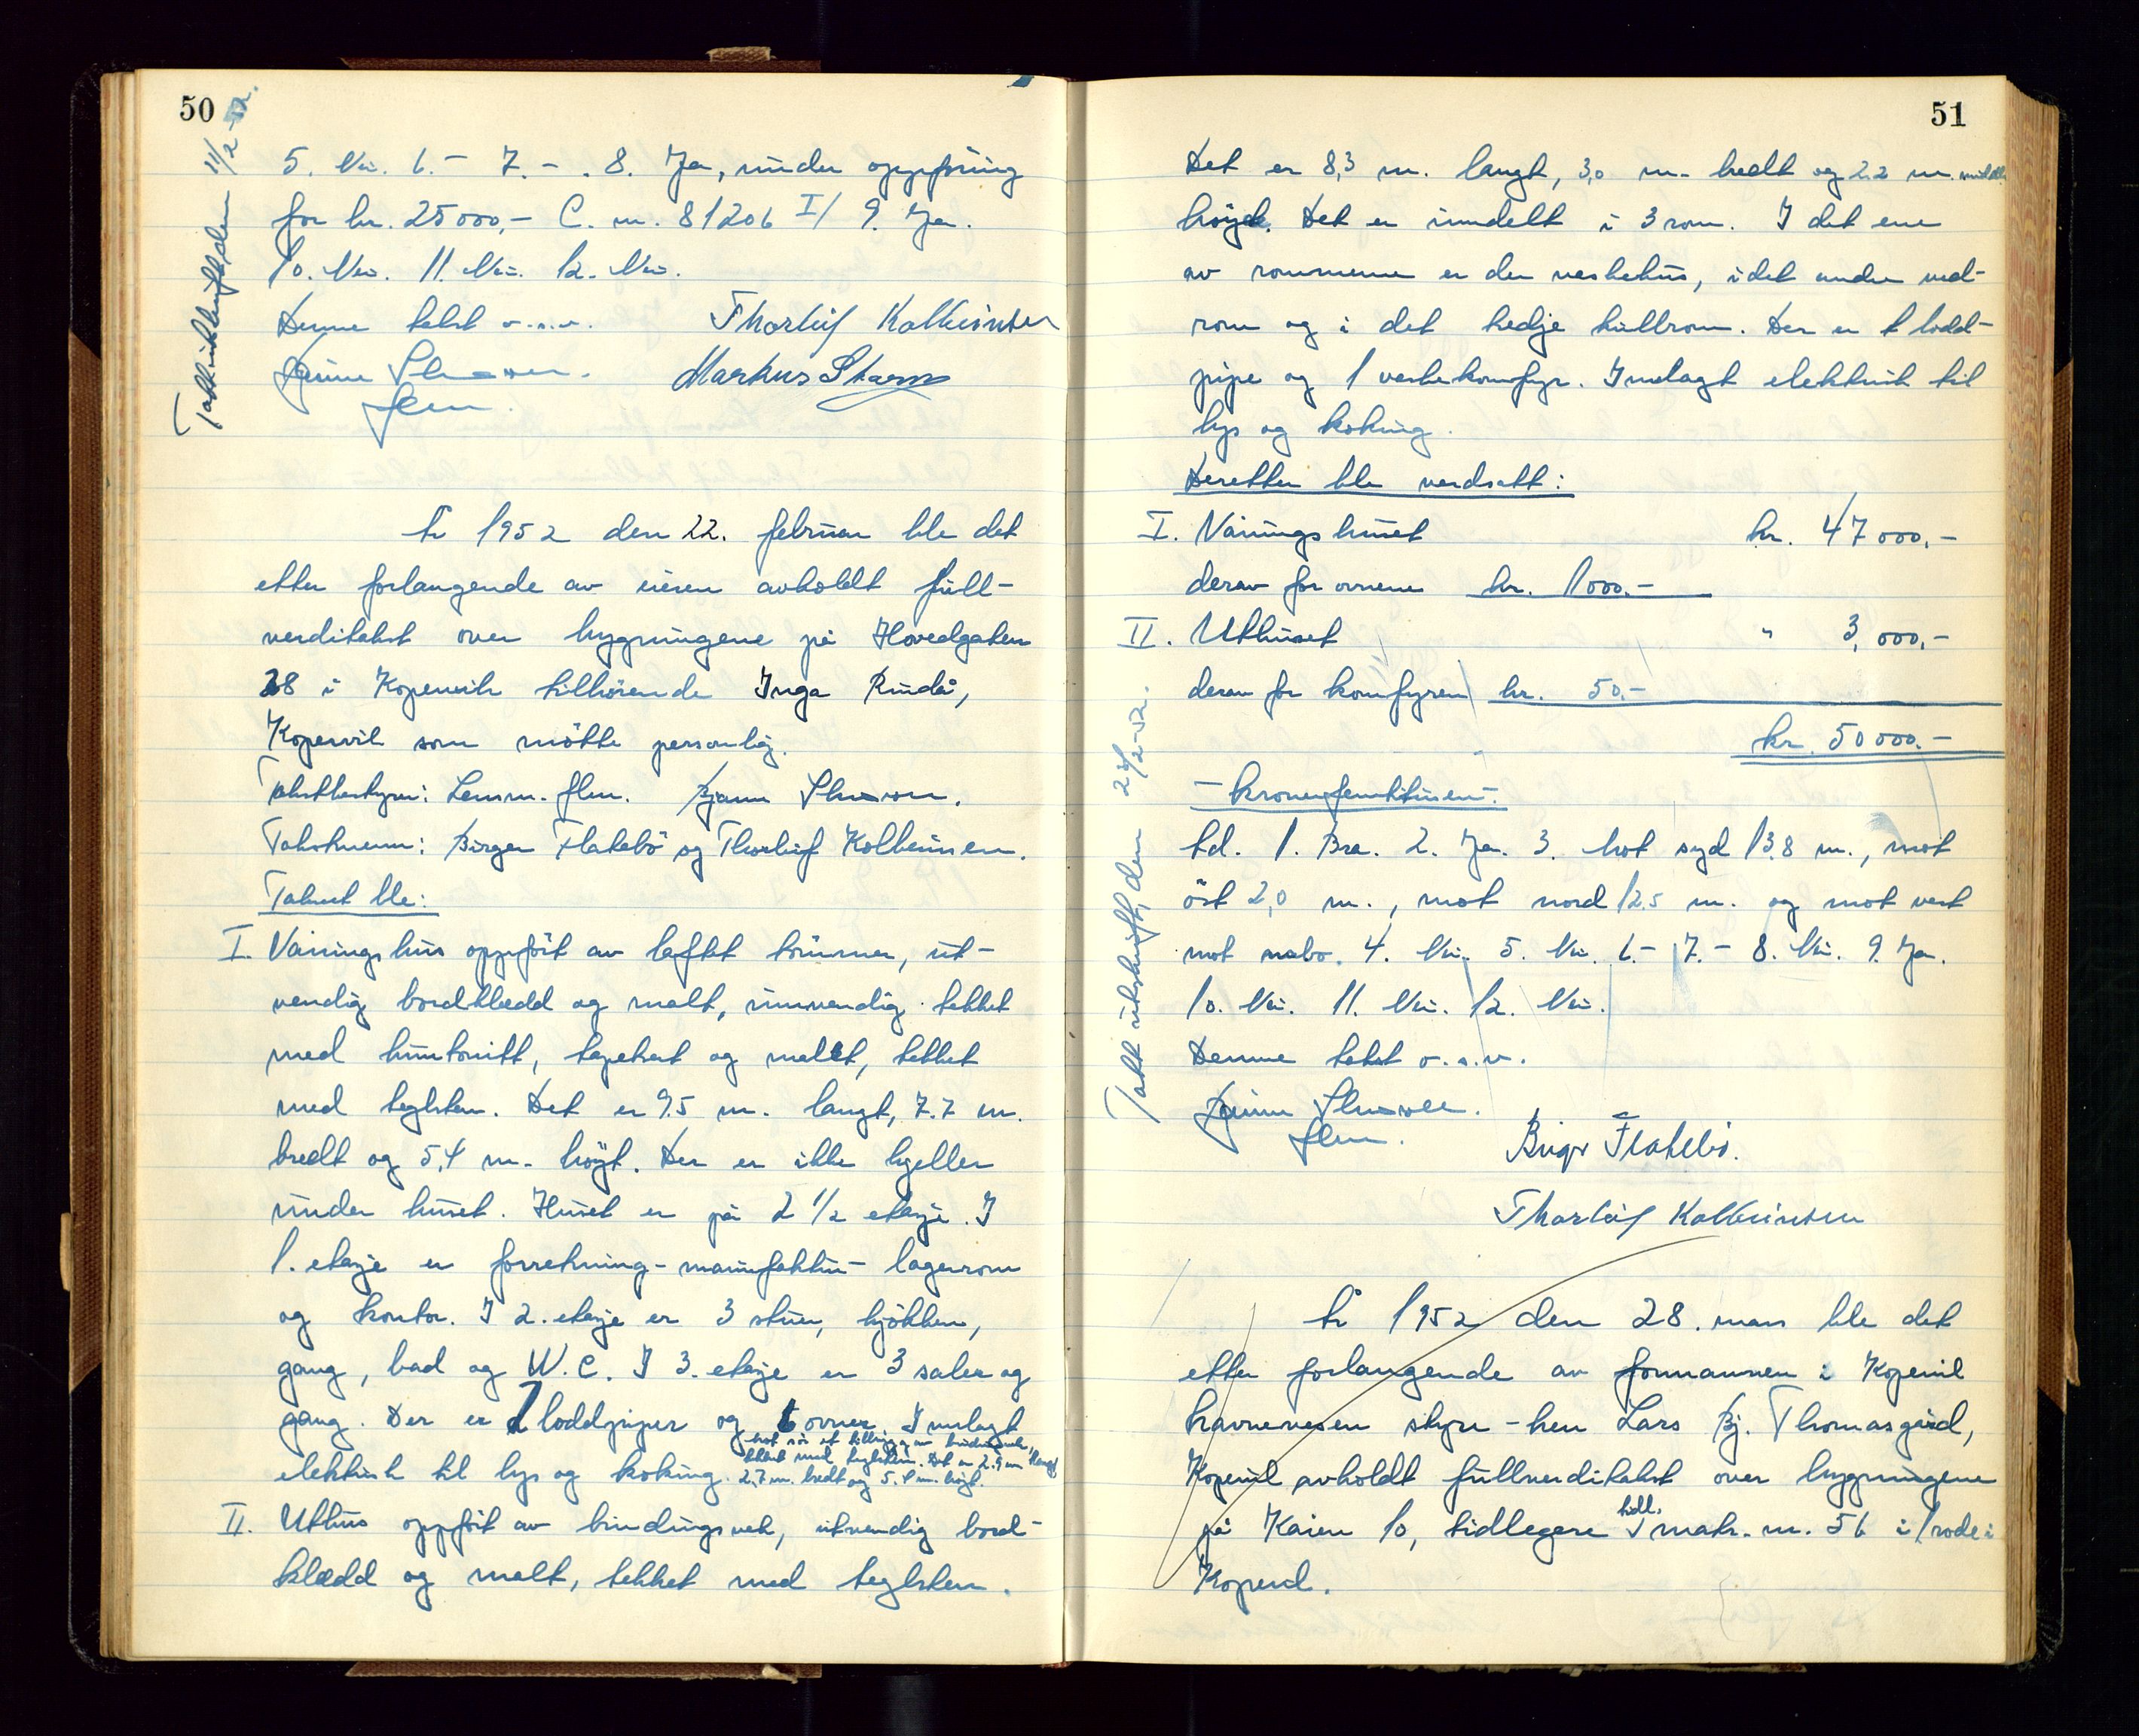 50
Tatt utskrift, den 11/2-52.
5. Nei. 6. – 7. – . 8. Ja, under oppføring
for kr. 25000,- C. nr. 81206 I/ 9. Ja.
10. Nei. 11. Nei. 12. Nei.
Denne takst o.s.v. Thorleif Kolbeinsen
Markus Stam
År 1952 den 22. februar ble det
etter forlangende av eieren avholdt full-
verditakst over bygningene på Hovedgaten
28 i Kopervik tilhørende Inga
Kopervik som møtte personlig.
Takstbestyrer: Lensm. flm. Bjarne
Takstmenn: Birger Flatebö og Thorleif Kolbeinsen.
Takert ble:
I. Våningshus oppfört av laftet tömmer, ut-
vendig bordkledd og malt, innvendig tekket
med huntonitt, tapetsert og malet, tekket
med teglsten. Det er 9.5 m. langt, 7.7 m.
bredt og 5,4 m. höyt. Der er ikke kjeller
under huset. Huset er på 2 1/2 etasje. I
1. etasje er forretning-manufaktur- lagerrom
og kontor. I 2. etasje er 3 stuer, kjökken,
gang, bad og W.C. I 3. etasje er 3 saler og
gang. Der er 2 loddpiper og 6 ovner. Innlagt
mot sör et tilbygg av bindingsverk,
tekket med teglsten. Det er 2.9 m langt
elektrisk til lys og koking. 2,7 m. bredt og 5.4 m. höyt.
II. Uthus oppfört av bindingsverk, utvendig bord-
kledd og malt, tekket med teglsten.
51
Det er 8,3 m. langt, 3,0 m. bredt og 2.2 m. middels
höyde. Det er inndelt i 3 rom. I det ene
av rommene er der vaskehus, i det andre ved-
rom og i det tredje kullrom. Der er 1 lodd-
pipe og 1 vaskekomfyr. Innlagt elektrisk til
lys og koking.
Deretter ble verdsatt:
I. Våningshuset kr. 47000,-
derav for ovnene kr. 1000.-
II. Uthuset " 3,000,-
derav for komfyren kr. 50.-
kr. 50000.-
- kronerfemtitusen -.
Tatt utskrift, den 22/2-52.
td. 1. Bra. 2. Ja. 3. Mot syd 13.8 m., mot
öst 2,0 m., mot nord 12.5 m. og mot vest
mot nabo. 4. Nei. 5. Nei. 6. – 7. – 8. Nei. 9. Ja.
10. Nei. 11. Nei. 12. Nei.
Denne takst o.s.v.
Birger Flatebö.
Thorleif Kolbeinsen
År 1952 den 28. mars ble det
etter forlangende av formannen i Kopervik
havnevesen styre - herr Lars Bj. Thomasgård,
Kopervik avholdt fullverditakst over bygningene
på Kaien 10, tidlegere tidl. matr. nr. 56 i 1 rode i
Kopervik.